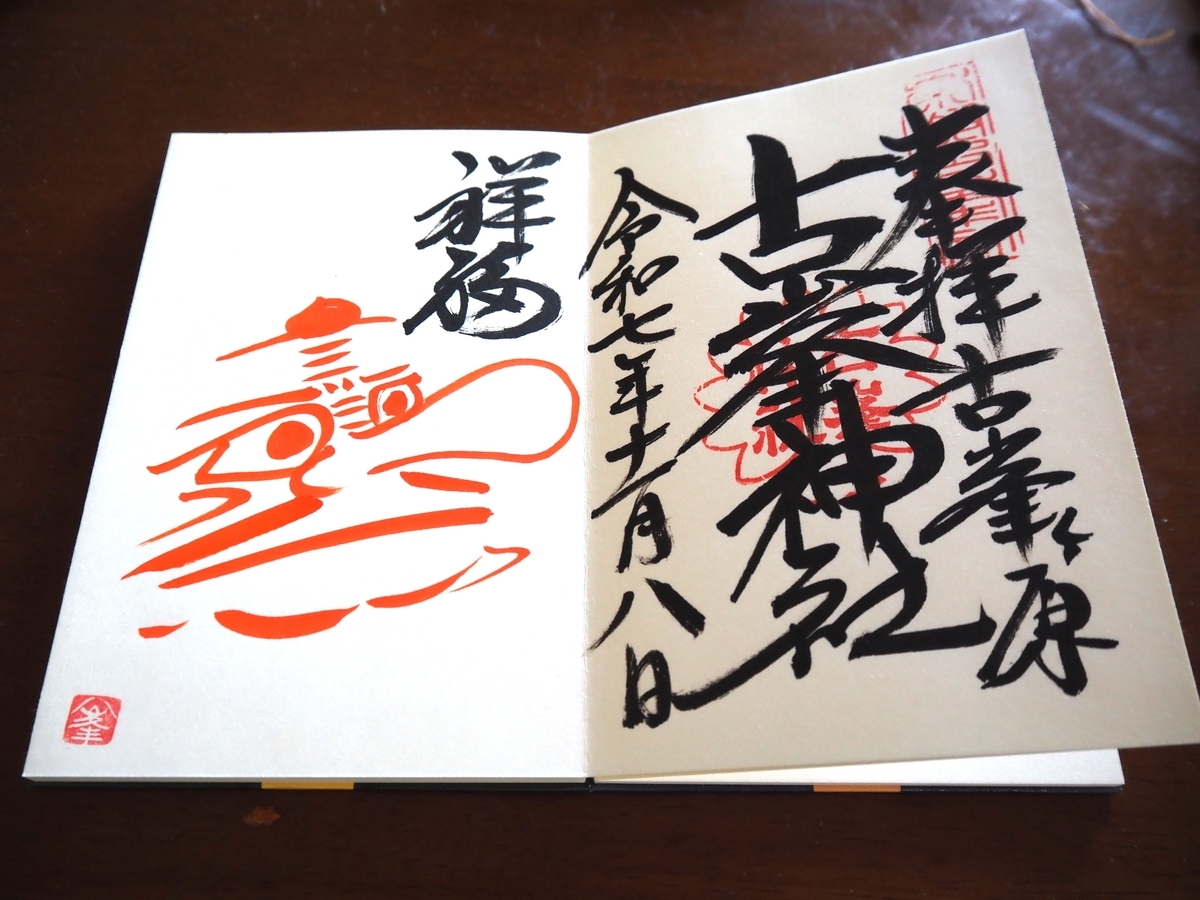 奉拝 古峯ヶ原
古峯神社
令和七年十一月八日
祥福
峯